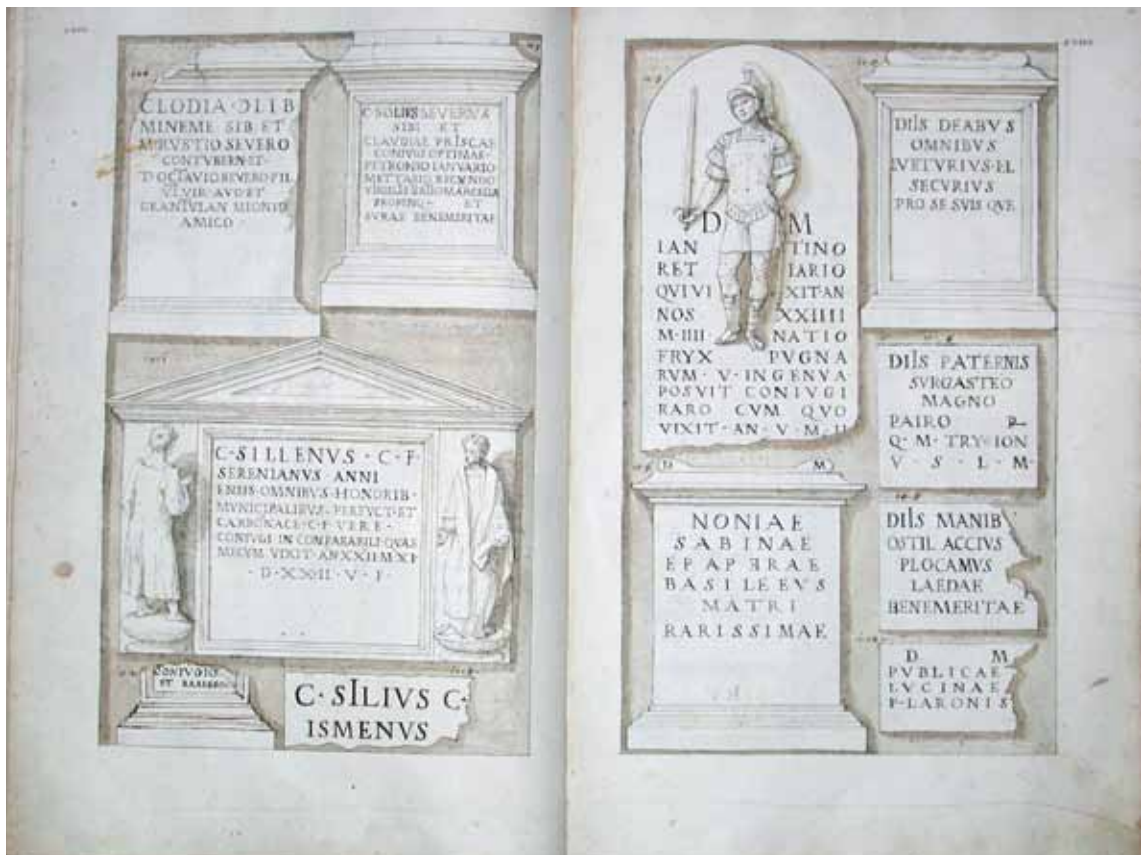 CLODIA·DLIB
MINEME SIB ET
M·RVSTIO SEVERO
CONTVBERN·ET·
D·OCTAVIO SEVERO FIL
VI·VIR·AVG·ET
AMICO·
C·SOLIVS SEVERVS
SIBI ET
CLAVDIAE PRISCAE
CONIVGI OPTIMAE·
PETRONIO IANVARIO
ET
BENEMERITAE
C·SILLENVS·C·F
SERENIANVS ANNI
ENSIS·OMNIBVS·HONORIB·
MVNICIPALIBVS·PERFVCT·ET
CARBONACE·C·F·VERE·
CONIVGI INCOMPARABILI·QVAE
·D·XXIII·V·F·
CONIVGIO
ET
C·SILIVS C·
ISMENVS
D M
IAN TINO
RET IARIO
QVI VI XIT·AN
NOS XXIIII
M·IIII· NATIO
FRYX PVGNA
RVM·V·INGENVA
POSVIT CONIVGI
RARO CVM QVO
VIXIT·AN·V·M·II
DIIS DEABVS
OMNIBVS
LVETVRIVS·EL
SECVRIVS
PRO SE SVIS QVE
DIIS PATERNIS
SVRGASTEO
MAGNO
PATRO
Q·M·TRYFION
V·S·L·M·
D M
NONIAE
SABINAE
EPAPƎRAE
BASILEEVS
MATRI
RARISSIMAE
DIIS MANIB
OSTIL ACCIVS
PLOCAMVS
LAEDAE
BENEMERITAE
D M
PVBLICAE
LVCINAE
P·LARONIS